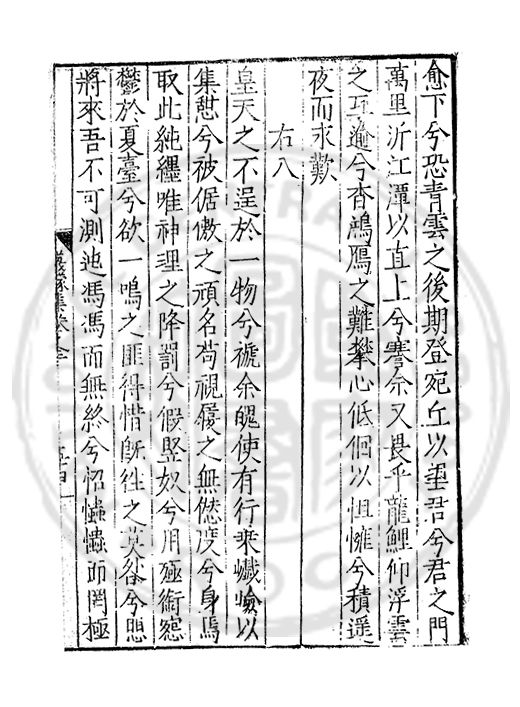 愈下兮恐青雲之後期登宛丘以望君兮君之門
萬里泝江潭以直上兮蹇余又畏乎龍鯉仰浮雲
之互逾兮杳鴻鴈之難攀心低佪以怚慛兮積遥
夜而永歎
右八
皇天之不逞於一物兮褫余魄使有行乘巇嶮以
集愆兮被倨傲之頑名苟視履之無愆度兮身焉
取此純纆唯神理之降罰兮假豎奴兮用殛衔冤
鬱於夏臺兮欲一鳴之匪得惜旣徃之莫咎兮思
將來吾不可測迆馮馮而無終兮怊懴懴而罔極